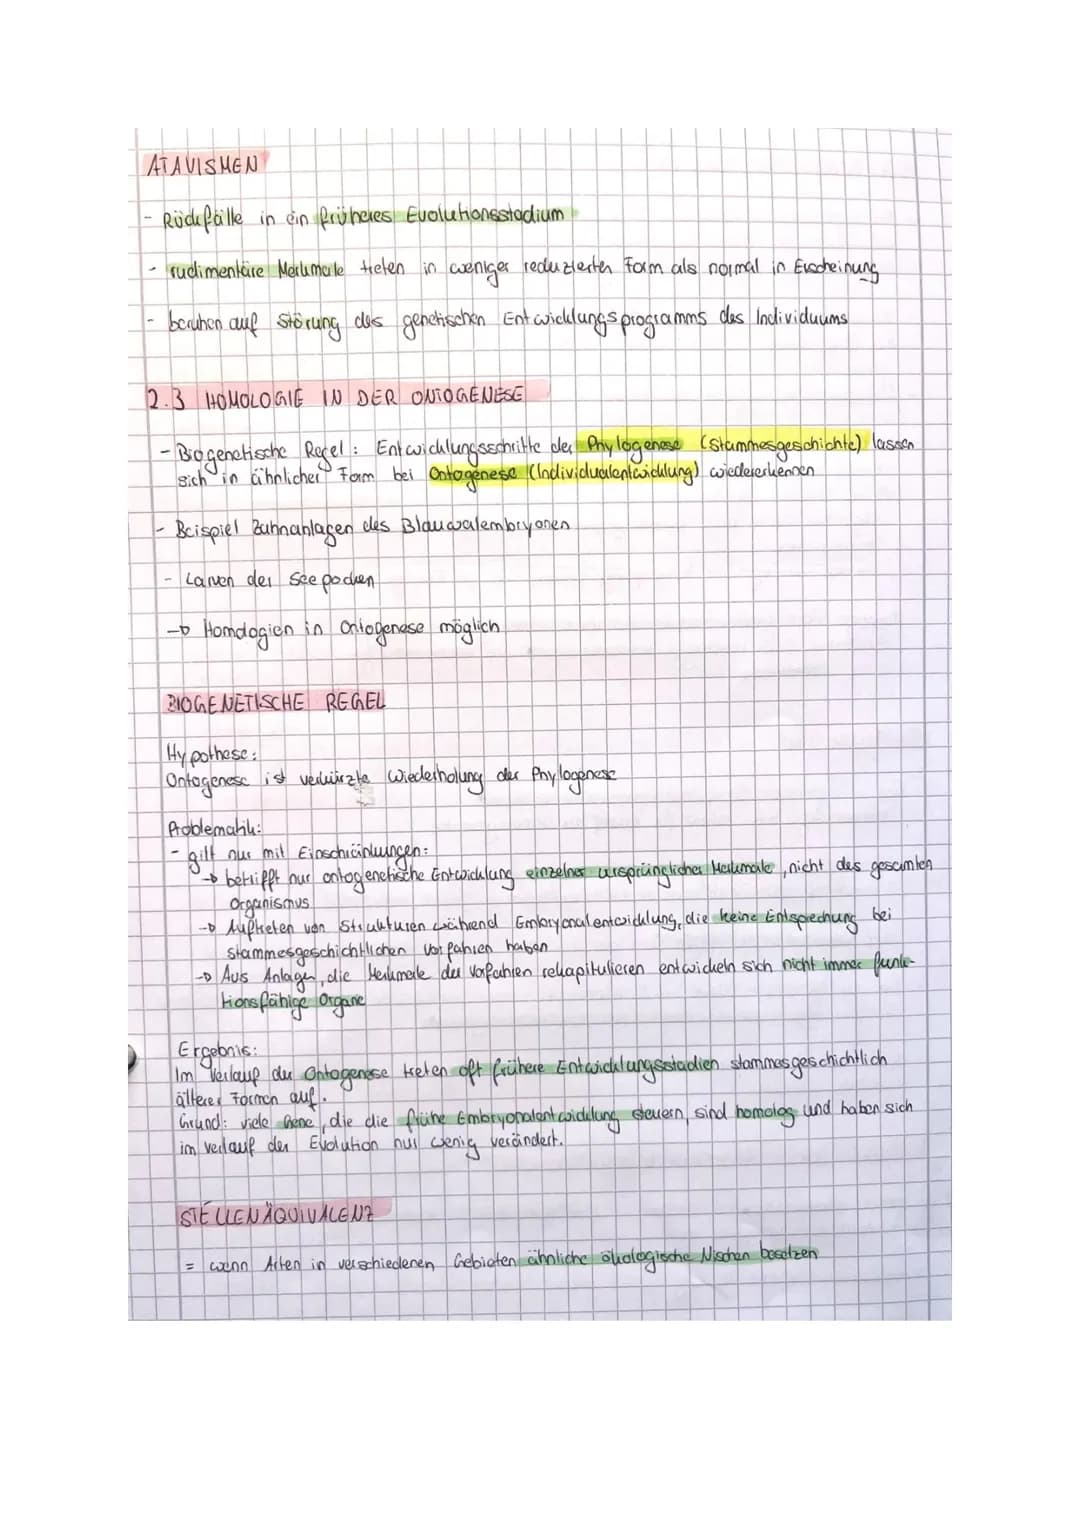 ATAVISMEN
- Rückfälle in ein früheres Evolutionsstadium
- rudimentäre Merkmale treten in weniger reduzierter Form als normal in Erscheinung
- beruhen auf Störung des genetischen Entwicklungsprogramms des Individuums
2.3 HOMOLOGIE IN DER ONTOGENESE
- Biogenetische Regel: Entwicklungsschritte der Phylogenese (Stammesgeschichte) lassen
sich in ähnlicher Form bei Ontogenese (Individualentwicklung) wiedererkennen
- Beispiel Zahnanlagen des Blauwalembryonen
- Larven der Seepocken
→ Homologien in Ontogenese möglich
BIOGENETISCHE REGEL
Hypothese:
Ontogenese ist verkürzte Wiederholung der Phylogenese
Problematik:
- gilt nur mit Einschränkungen:
→ betrifft nur ontogenetische Entwicklung einzelner ursprünglicher Merkmale, nicht des gesamten
Organismus
→ Auftreten von Strukturen während Embryonalentwicklung, die keine Entsprechung bei
stammesgeschichtlichen Vorfahren haben
→ Aus Anlagen, die Merkmale der Vorfahren rekapitulieren entwickeln sich nicht immer funk-
tionsfähige Organe
Ergebnis:
Im Verlauf der Ontogenese treten oft frühere Entwicklungsstadien stammesgeschichtlich
älterer Formen auf.
Grund: viele Gene, die die frühe Embryonalentwicklung steuern, sind homolog und haben sich
im Verlauf der Evolution nur wenig verändert.
STELLENÄQUIVALENZ
= wenn Arten in verschiedenen Gebieten ähnliche ökologische Nischen besetzen